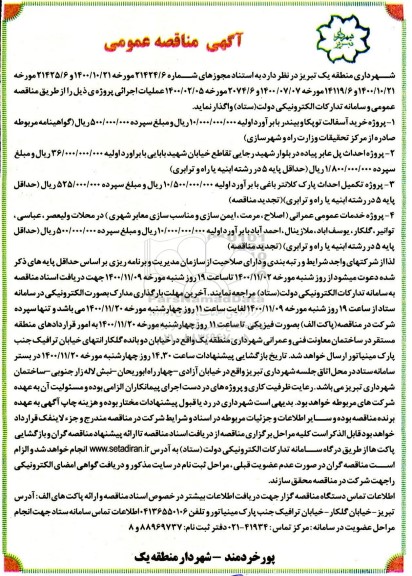 آگهی مناقصه عمومی
شهرداری منطقه یک تبریز در نظر دارد به استناد مجوزهای شماره ۲۱۴۲۴/۶ مورخه ۱۴۰۰/۱۰/۲۱ و ۲۱۴۲۵/۶ مورخه
۱۴۰۰/۱۰/۲۱ و ۱۴۱۱۹/۶ مورخه ۱۴۰۰/۰۷/۰۷ و ۲۰۷۴/۶ مورخه ۱۴۰۰/۰۲/۰۵ عملیات اجرائی پروژه‌ی ذیل را از طریق مناقصه
عمومی و سامانه تدارکات الکترونیکی دولت(ستاد) واگذار نماید.
۱- پروژه خرید آسفالت توپکا و بیندر با برآورد اولیه ۱۰/۰۰۰/۰۰۰/۰۰۰ ریال و مبلغ سپرده ۵۰۰/۰۰۰/۰۰۰ ریال (گواهینامه مربوطه
صادره از مرکز تحقیقات وزارت راه و شهرسازی)
۲- پروژه احداث پل عابر پیاده در بلوار شهید رجایی تقاطع خیابان شهید بابایی با برآورد اولیه ۳۶/۰۰۰/۰۰۰/۰۰۰ ریال و مبلغ
سپرده ۱/۸۰۰/۰۰۰/۰۰۰ ریال (حداقل پایه ۵ در رشته ابنیه یا راه و ترابری)
۳- پروژه تکمیل احداث پارک کلانتر باغی با برآورد اولیه ۱۰/۵۰۰/۰۰۰/۰۰۰ ریال و مبلغ سپرده ۵۲۵/۰۰۰/۰۰۰ ریال (حداقل
پایه ۵ در رشته ابنیه یا راه و ترابری) (تجدید مناقصه)
۴- پروژه خدمات عمومی عمرانی (اصلاح، مرمت، ایمن سازی و مناسب سازی معابر شهری) در محلات ولیعصر، عباسی،
توانیر، گلکار، یوسف آباد، ملازینال، احمدآباد با برآورد اولیه ۱۰/۰۰۰/۰۰۰/۰۰۰ ریال و مبلغ سپرده ۵۰۰/۰۰۰/۰۰۰ ریال (حداقل
پایه ۵ در رشته ابنیه یا راه و ترابری) (تجدید مناقصه)
لذا از شرکتهای واجد شرایط و رتبه بندی و دارای صلاحیت از سازمان مدیریت و برنامه ریزی بر اساس حداقل پایه های ذکر
شده دعوت میشود از روز شنبه مورخه ۱۴۰۰/۱۱/۰۲ تا ساعت ۱۹ روز شنبه مورخه ۱۴۰۰/۱۱/۰۹ جهت دریافت اسناد مناقصه
به سامانه تدارکات الکترونیکی دولت(ستاد) مراجعه نمایند. آخرین مهلت بارگذاری مدارک بصورت الکترونیکی در سامانه
ستاد از ساعت ۱۹ روز شنبه مورخه ۱۴۰۰/۱۱/۰۹ لغایت ساعت ۱۱ روز چهارشنبه مورخه ۱۴۰۰/۱۱/۲۰ می باشد و تنها سپرده
شرکت در مناقصه(پاکت الف) بصورت فیزیکی تا ساعت ۱۱ روز چهارشنبه مورخه ۱۴۰۰/۱۱/۲۰ به امور قراردادهای منطقه
مستقر در ساختمان معاونت فنی و عمرانی شهرداری منطقه یک واقع در خیابان دوبانده گلکار انتهای خیابان ترافیک جنب
پارک مینیاتور ارسال خواهد شد. تاریخ بازگشایی پیشنهادات ساعت ۱۴.۳۰ روز چهارشنبه مورخه ۱۴۰۰/۱۱/۲۰ در بستر
سامانه ستاد در محل اتاق جلسه شهرداری تبریز واقع در خیابان آزادی -چهارراه ابوریحان -نبش لاله زار جنوبی -ساختمان
شهرداری تبریز می باشد. رعایت ظرفیت کاری و پروژه های در دست اجرای پیمانکاران الزامی بوده و مسئولیت آن به عهده
شرکت های مربوطه خواهد بود. بدیهی است شهرداری در رد یا قبول پیشنهادات مختار بوده و هزینه چاپ آگهی به عهده
برنده مناقصه بوده و سایر اطلاعات و جزئیات مربوطه در اسناد و شرایط شرکت در مناقصه مندرج و جزء لاینفک قرارداد
خواهد بود قابل الذکر است کلیه مراحل برگزاری مناقصه از دریافت اسناد مناقصه تا ارائه پیشنهاد مناقصه گران و بازگشایی
پاکت ها از طریق درگاه سامانه تدارکات الکترونیکی دولت (ستاد) به آدرس www.setadiran.ir انجام خواهد شد و الزام
است مناقصه گران در صورت عدم عضویت قبلی، مراحل ثبت نام در سایت مذکور و دریافت گواهی امضای الکترونیکی
را جهت شرکت در مناقصه محقق سازند.
اطلاعات تماس دستگاه مناقصه گزار جهت دریافت اطلاعات بیشتر در خصوص اسناد مناقصه و ارائه پاکت های الف: آدرس
تبریز - خیابان گلکار - خیابان ترافیک جنب پارک مینیاتور و تلفن ۰۴۱۳۶۵۵۰۱۰۶ اطلاعات تماس سامانه ستاد جهت انجام
مراحل عضویت در سامانه: مرکز تماس: ۴۱۹۳۴-۰۲۱ دفتر ثبت نام: ۸۸۹۶۹۷۳۷ و ۸
پورخردمند - شهردار منطقه یک